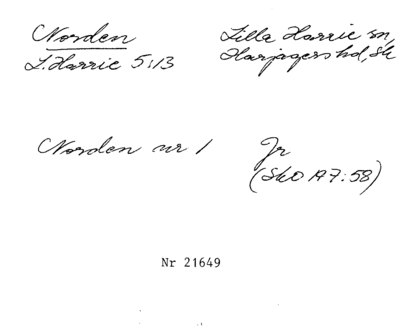 Norden
L. Harrie 5:13
Lilla Harrie sn,
Harjagers hd, Sk
Norden nr 1
Jr
(SkO A 7:58)
Nr 21649